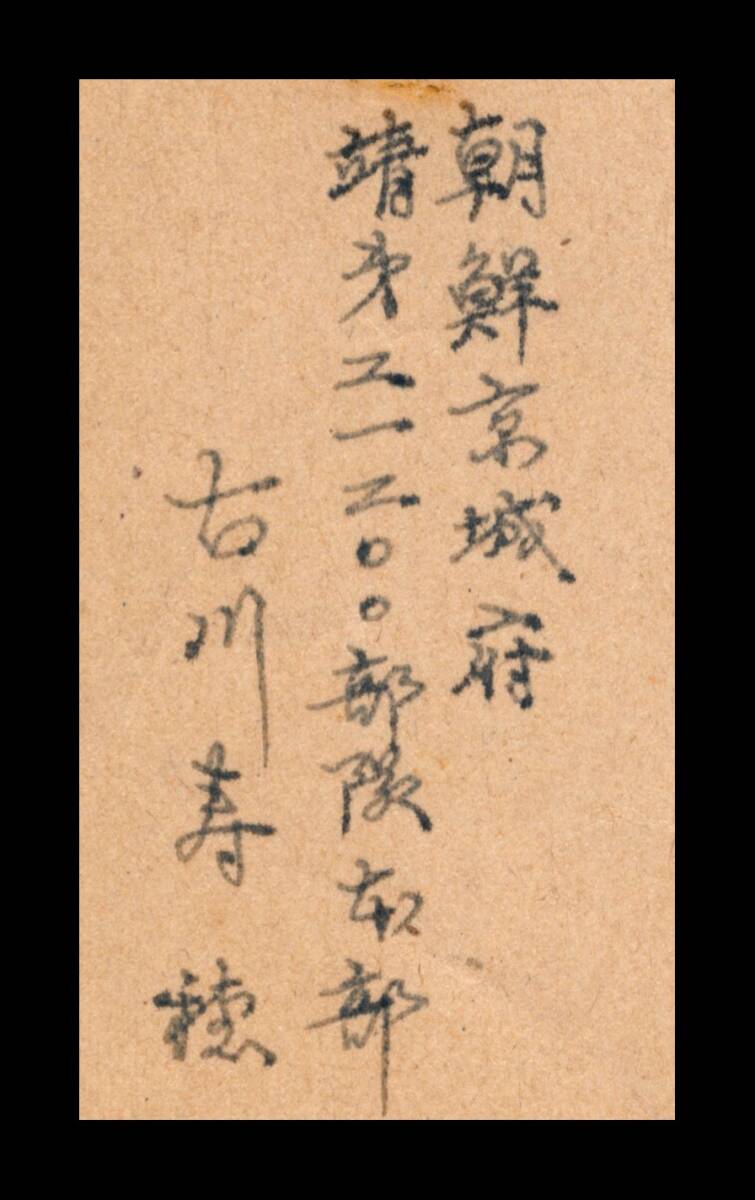 朝鮮京城府
靖第二一二〇〇部隊本部
古川寿穂